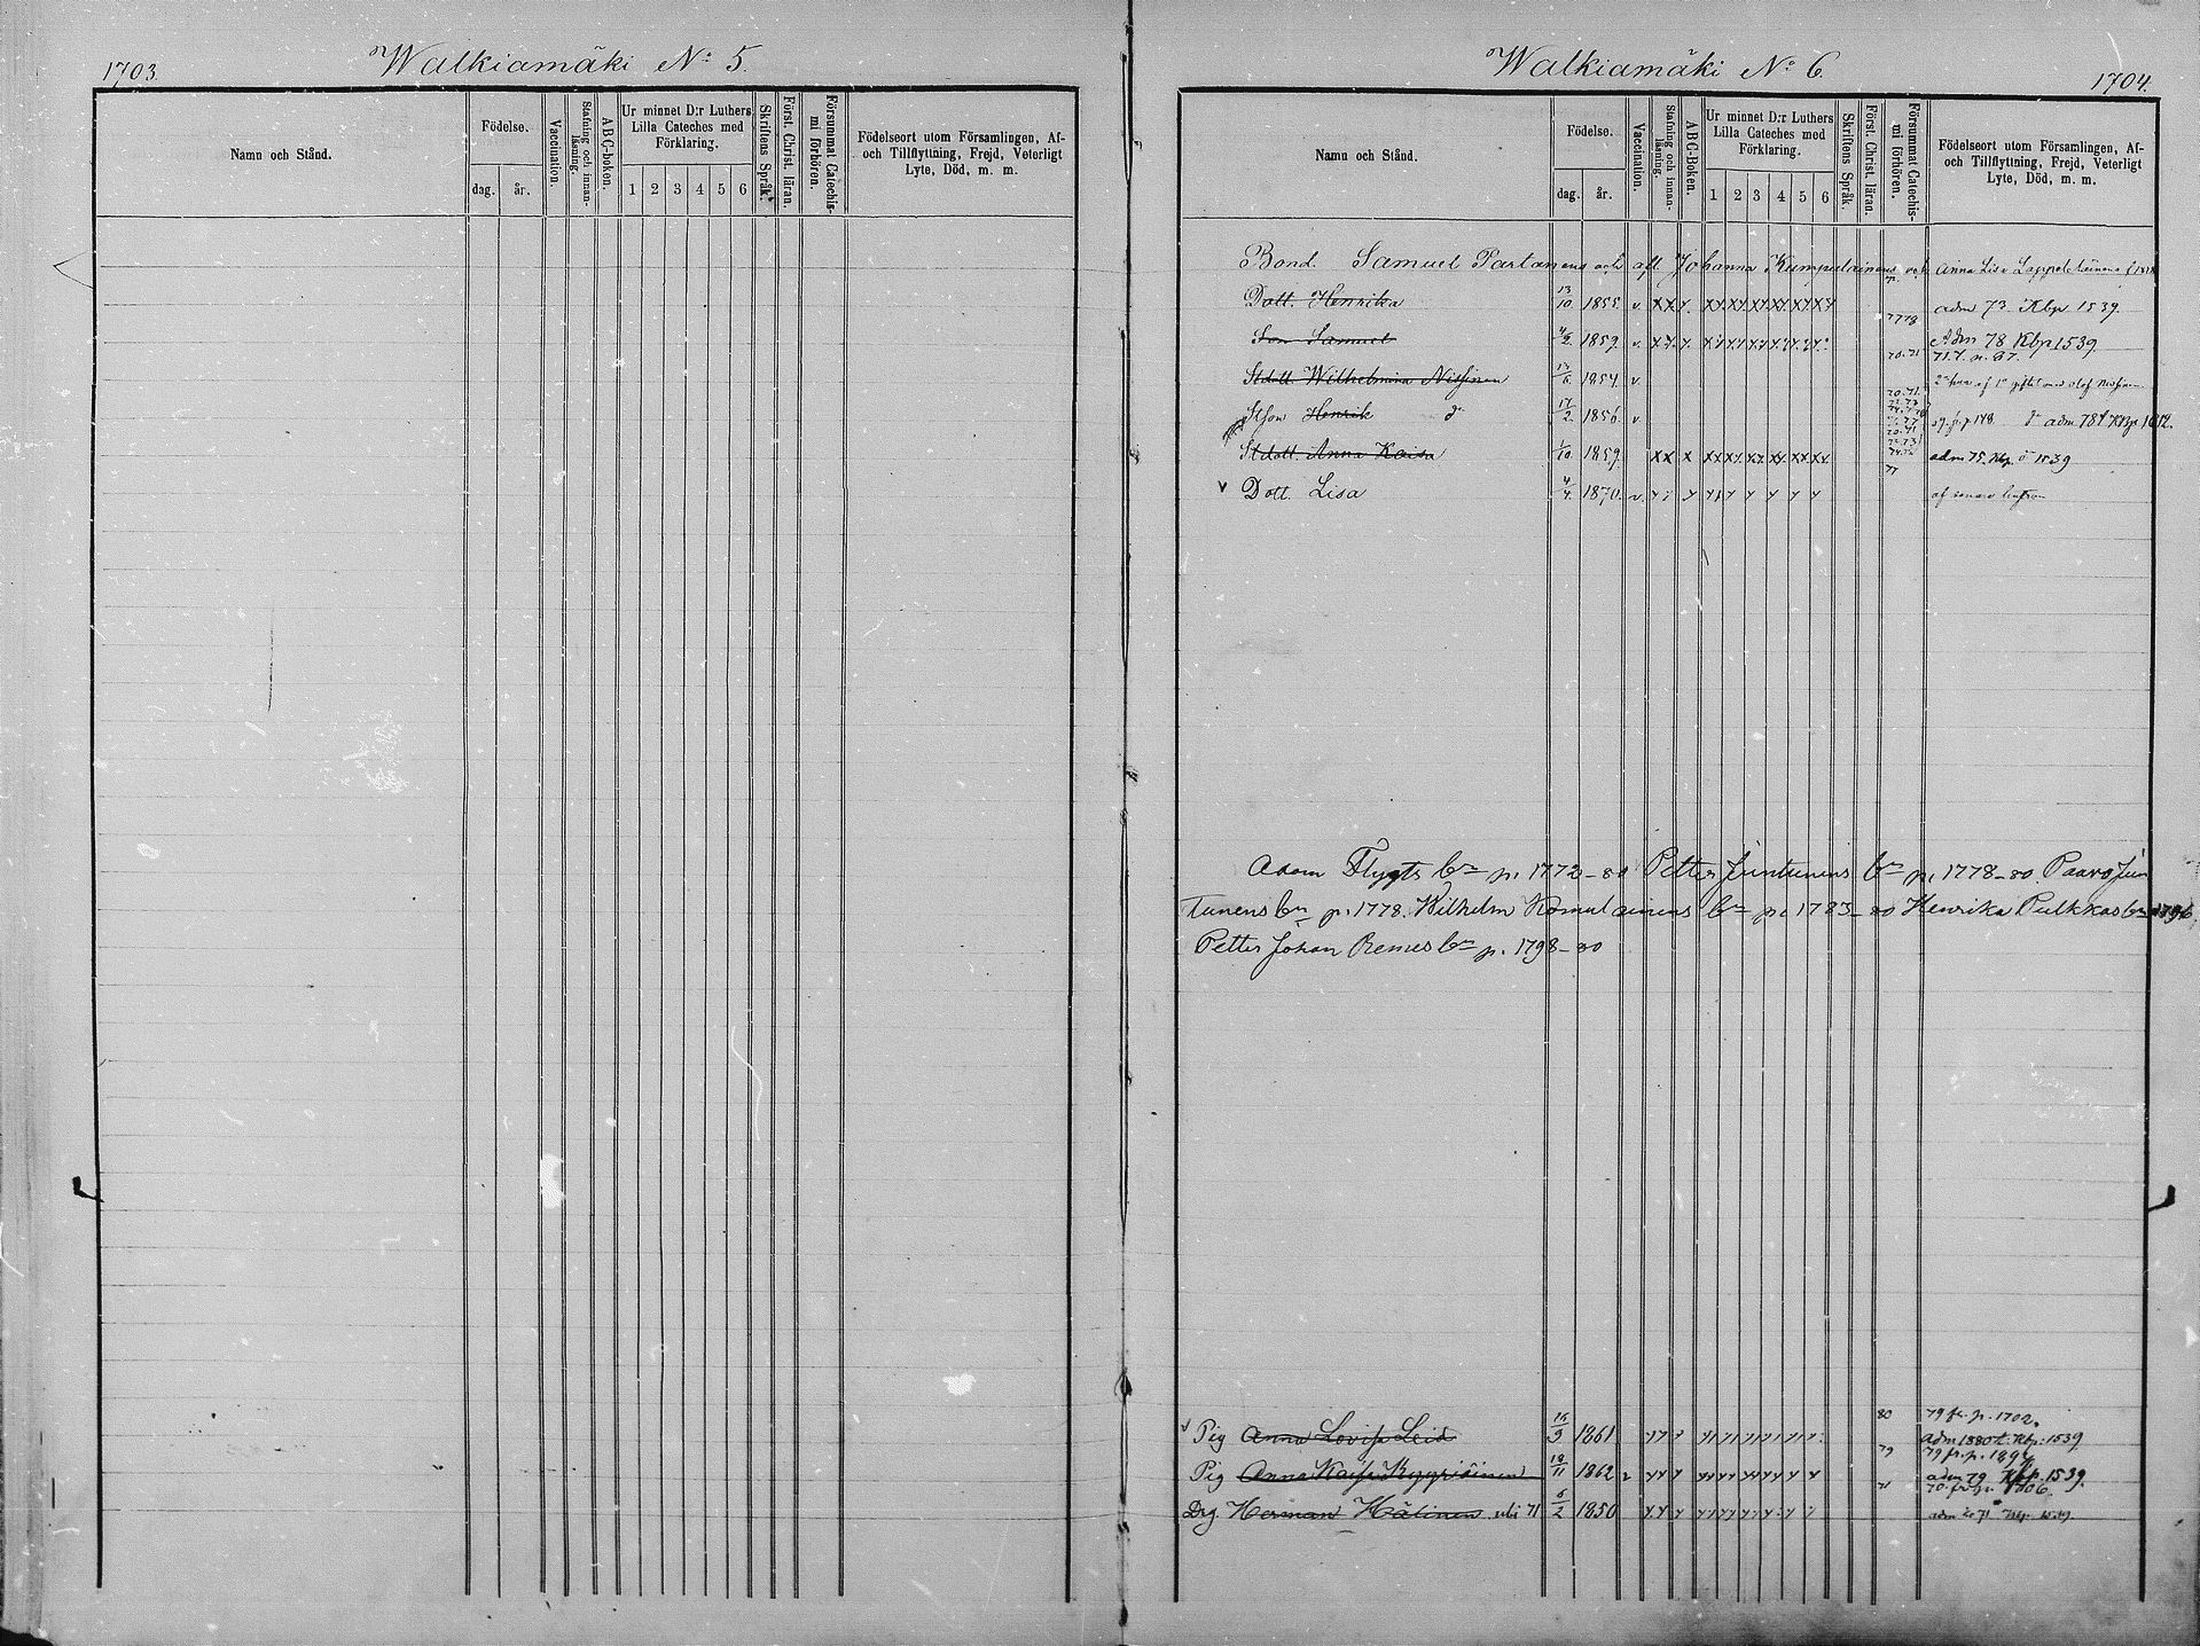 1703.
Walkiamäki No 5.
Namn och Stånd.
Födelse.
dag.
år.
Vaccination.
Stafning och innan-
läsning.
ABC-boken.
Ur minnet D:r Luthers
Lilla Cateches med
Förklaring.
1 2 3 4 5 6
Skriftens Språk.
Först. Christ. läran.
Försummat Catechis-
mi förhören.
Födelseort utom Församlingen, Af-
och Tillflyttning, Frejd, Veterligt
Lyte, Död, m. m.
Walkiamäki No 6.
1704.
Namn och Stånd.
Födelse.
dag.
år.
Vaccination.
Stafning och innan-
läsning.
ABC-Boken.
Ur minnet D:r Luthers
Lilla Cateches med
Förklaring.
1 2 3 4 5 6
Skriftens Språk.
Först. Christ. läran.
Försummat Catechis-
mi förhören.
Födelseort utom Församlingen, Af-
och Tillflyttning, Frejd, Veterligt
Lyte, Död, m. m.
Bond. Samuel Partanens och afl. Johanna Kumpulainens och Anna Lisa
Dott. Henrika 13/10 1855. v. adm 73 Kbp 1539.
Son Samuel 4/2 1859. v. 7778 Adm 78 Kbp 1539.
Stdott. Wilhelmina Nissinen 13/6 1854. v. 70.71
Stson Henrik do 17/2 1856. v. adm 78 Kbp 1612.
Stdott. Anna Kaisa 1/10 1859. adm 75. Kbp. 1539
v Dott. Lisa 4/4 1870. v.
Adam Flygts bn p. 1772-80 Petter Juntunens bn p. 1778-80. Paavo Jun
tunens bn p. 1778. Wilhelm Komulainens bn p. 1783-80 Henrika Pulkkas bn 1796.
Petter Johan Remes bn p. 1798-80
v Pig Anna Lovisa Leid 16/9 1861 80 79 fr. p. 1702.
adm 1880 t. Kbp. 1539
Pig Anna Kaisa Kyyriäinen 18/11 1862 79 79 fr. p. 1894
adm 79. Kbp. 1539.
Drg. Herman Hälinen 71 6/2 1850 71